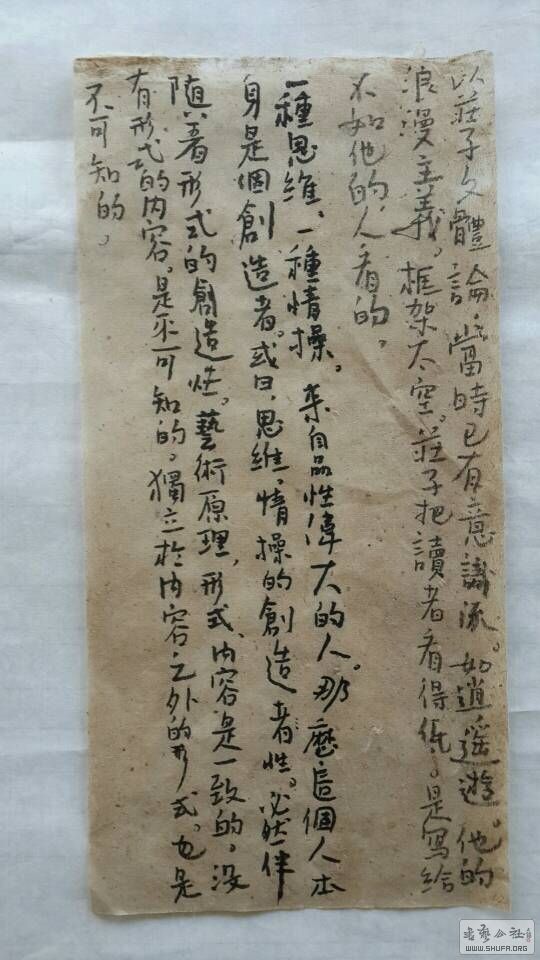 以莊子文體論，當時已有意識流。如逍遙遊。他的
浪漫主義，框架太空。莊子把讀者看得低。是寫給
不如他的人看的，
一種思維、一種情操。來自品性偉大的人。那麼這個人本
身是個創造者。或曰，思維、情操的創造者性。必然伴
随着形式的創造性。藝術原理，形式、内容是一致的，没
有形式的内容。是不可知的，獨立於内容之外的形式。也是
不可知的，
WWW.SHUFA.ORG